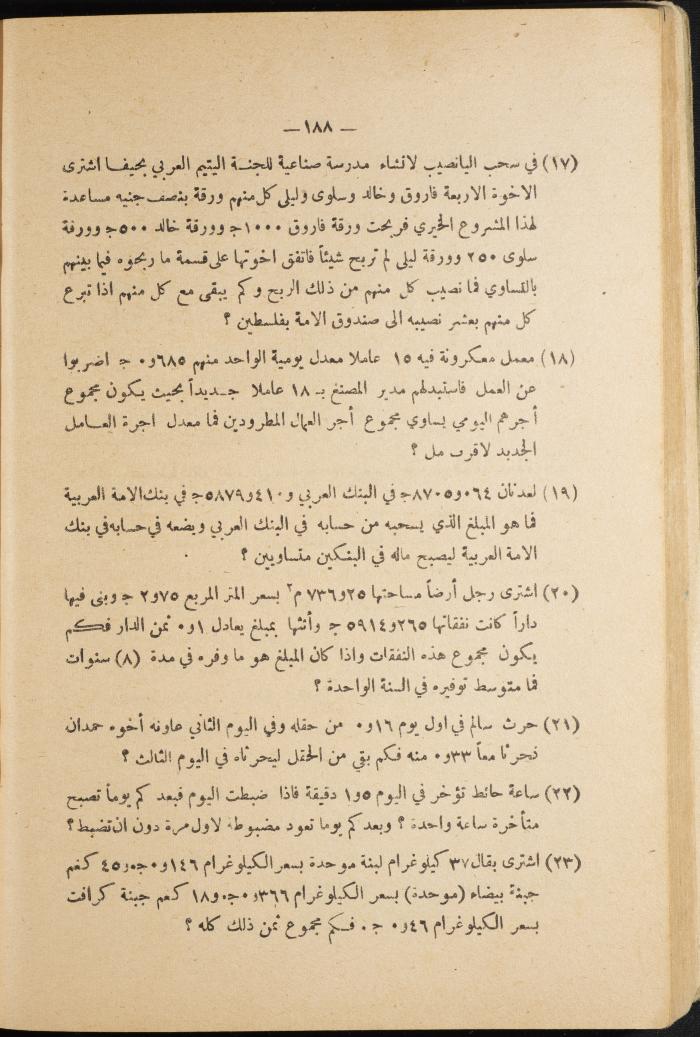 — ١٨٨ —
(١٧) في سحب اليانصيب لانشاء مدرسة صناعية للجنة اليتيم العربي بحيفا اشترى
الاخوة الاربعة فاروق وخالد وسلوى وليلى كل منهم ورقة بنصف جنيه مساعدة
لهذا المشروع الخيري فربحت ورقة فاروق ١٠٠٠ج وورقة خالد ٥٠٠ج وورقة
سلوى ٢٥٠ وورقة ليلى لم تربح شيئاً فاتفق اخوتها على قسمة ما ربحوه فيما بينهم
بالتساوي فما نصيب كل منهم من ذلك الربح وكم يبقى مع كل منهم اذا تبرع
كل منهم بعشر نصيبه الى صندوق الامة بفلسطين ؟
(١٨) معمل معكرونة فيه ١٥ عاملا معدل يومية الواحد منهم ٦٨٥و٠ ج اضربوا
عن العمل فاستبدلهم مدير المصنع بـ ١٨ عاملا جديداً بحيث يكون مجموع
أجرهم اليومي يساوي مجموع أجر العمال المطرودين فما معدل اجرة العامل
الجديد لاقرب مل ؟
(١٩) لعدنان ٠٦٤و٨٧٠٥ج في البنك العربي و ٤١٠و٥٨٧٩ج في بنك الامة العربية
فما هو المبلغ الذي يسحبه من حسابه في البنك العربي ويضعه في حسابه في بنك
الامة العربية ليصبح ماله في البنكين متساويين ؟
(٢٠) اشترى رجل أرضاً مساحتها ٢٥و٧٣٦ م٢ بسعر المتر المربع ٧٥و٢ ج وبنى فيها
داراً كانت نفقاتها ٢٦٥و٥٩١٤ ج وأثثها بمبلغ يعادل ١و٠ ثمن الدار فكم
يكون مجموع هذه النفقات واذا كان المبلغ هو ما وفره في مدة (٨) سنوات
فما متوسط توفيره في السنة الواحدة ؟
(٢١) حرث سالم في اول يوم ١٦و٠ من حقله وفي اليوم الثاني عاونه أخوه حمدان
فحرثا معاً ٣٣و٠ منه فكم بقي من الحقل ليحرثاه في اليوم الثالث ؟
(٢٢) ساعة حائط تؤخر في اليوم ٥و١ دقيقة فاذا ضبطت اليوم فبعد كم يوماً تصبح
متأخرة ساعة واحدة ؟ وبعد كم يوما تعود مضبوطة لاول مرة دون ان تضبط؟
(٢٣) اشترى بقال ٣٧ كيلوغرام لبنة موحدة بسعر الكيلوغرام ١٤٦و٠ج.و٤٥ كغم
جبنة بيضاء (موحدة) بسعر الكيلوغرام ٣٦٦و٠ج.و١٨ كغم جبنة كرافت
بسعر الكيلوغرام ٤٦و٠ ج. فكم مجموع ثمن ذلك كله ؟